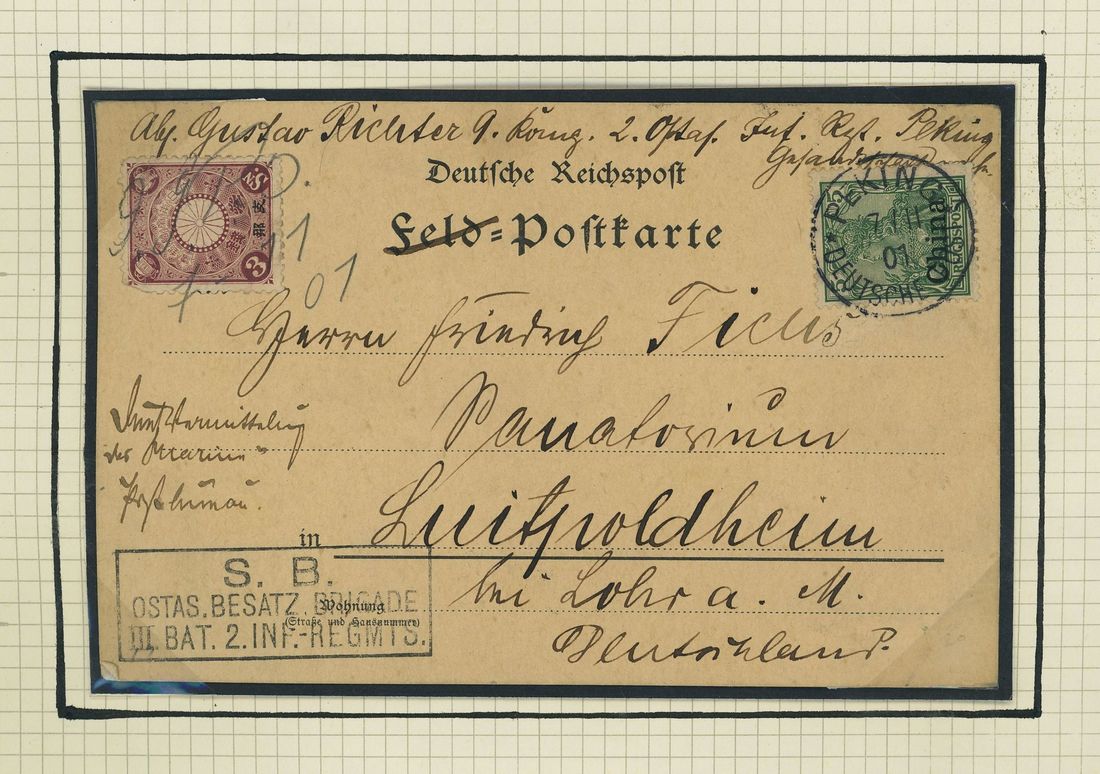 Abs. Gustav Richter 9. Komp. 2. Ostas. Inf. Rgt. Peking
Deutsche Reichspost
Feld-Postkarte
3 Sn.
支那
3
PEKING
DEUTSCHE
7
01
REICHSPOST
China
7
11
01
Herrn Friedrich Fichs
Sanatorium
Vermittelung
der Marine-
in Luitpoldheim
bei Lohr a. M.
Deutschland.
Wohnung
(Straße und Hausnummer)
S. B.
OSTAS. BESATZ. BRIGADE
III. BAT. 2. INF.-REGMTS.